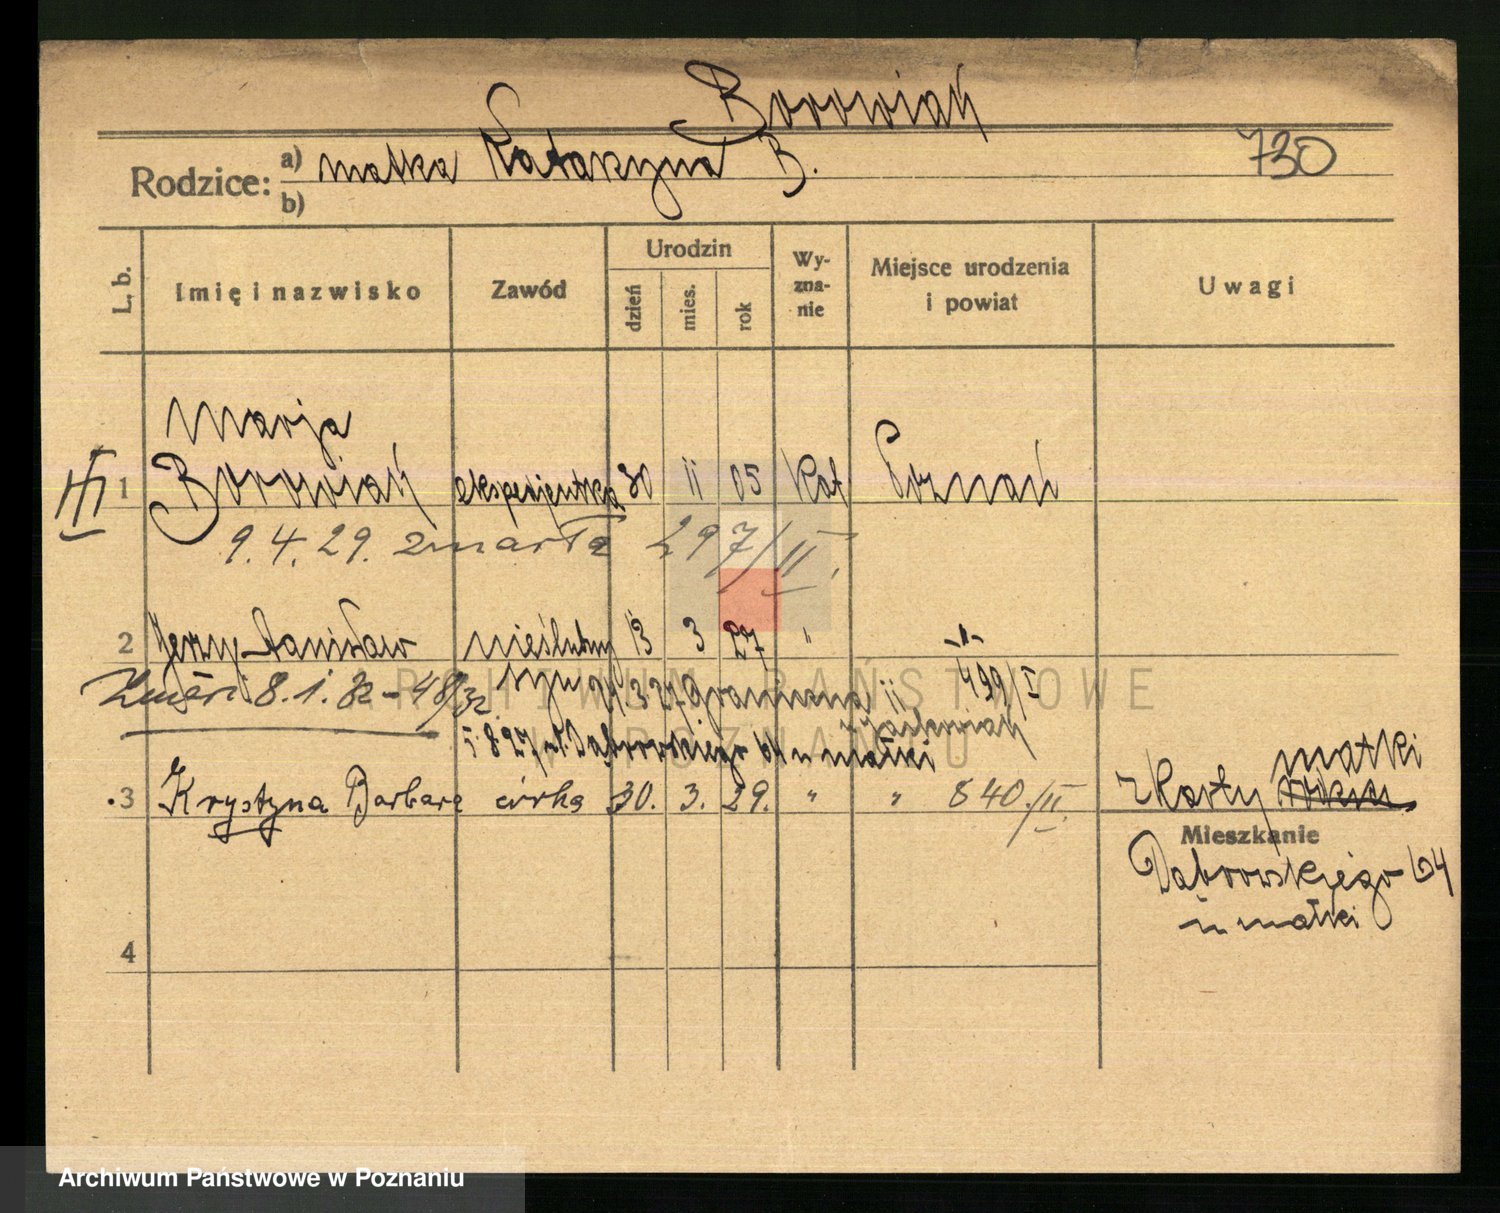 Borowiak
730
Rodzice: a) matka Katarzyna B.
b)
L. b. Imię i nazwisko Zawód Urodzin dzień mies. rok Wyznanie Miejsce urodzenia i powiat Uwagi
Marja
III 1 Borowiak ekspedjentka 30 11 05 Kat Poznań
9.4.29. zmarła 297/II.
2 Jerzy Stanisław nieślubny 13 3 27 " -"-
8.1.32 - 48/32 syn 499/I
ARCHIWUM PAŃSTWOWE
W POZNANIU
Dąbrowskiego 64 u matki
matki
3 Krystyna Barbara córka 30. 3. 29. " " 840./II. z Karty
Mieszkanie
Dąbrowskiego 64
u matki
4
Archiwum Państwowe w Poznaniu